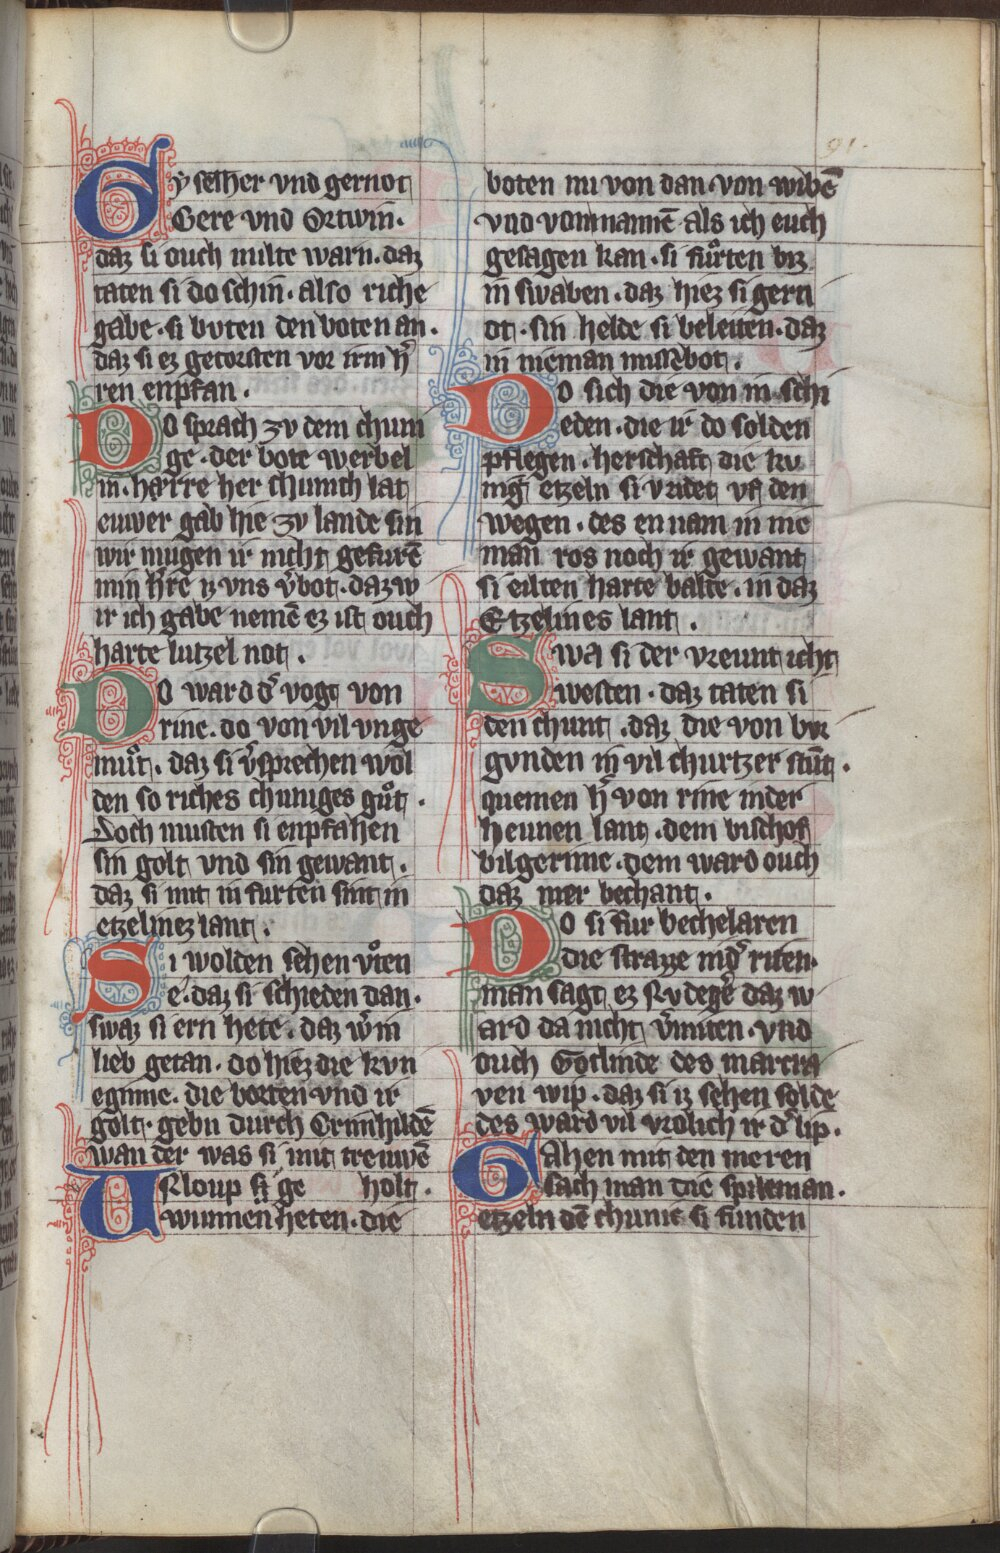 91.
Gyselher vnd gernot
Gere vnd Ortwin.
daz si ouch milte warn. daz
taten si do schin. also riche
gabe. si buten den boten an.
daz si ez getorsten vor irm h̄
ren enpfan.
Do sprach zv dem chuni
ge. der bote werbel
in. herre her chunich lat
euwer gab hie zv lande sin
wir mugen ir nicht gefurē
min h̄re iz vns v̄bot. daz w
ir ich gabe nemē ez ist ouch
harte lutzel not.
Do ward d̄ vogt von
rine. do von vil vnge
můt. daz si v̄sprechen wol
den so riches chuniges gůt.
Doch musten si enpfahen
sin golt vnd sin gewant.
daz si mit in furten sint in
etzelinez lant.
Si wolden sehen vͦten
e. daz si schieden dan.
swaz si ern hete. daz w̄ in
lieb getan. do hiez die kvn
eginne. die borten vnd ir
golt. gebn durch Crimhildē
wan der was si mit treuwē
Urloup si ge holt.
wunnen heten. die
boten nu von dan. von wibē
vnd von mannē als ich euch
gesagen kan. si fůrten biz
in swaben. daz hiez si gern
ot. sin helde si beleiten. daz
in nieman missebot.
Do sich die von in schi
eden. die ir do solden
pflegen. herschaft die kv
nig etzeln si vridet vf den
wegen. des en nam in nie
man ros noch ir gewant
si eilten harte balde. in daz
Etzelines lant.
Swa si der vreunt icht
westen. daz taten si
den chunt. daz die von bvr
gvnden in vil churtzer stūt.
quemen h̄ von rine in der
heunen lant. dem bischof
bilgerine. dem ward ouch
daz mer bechant.
Do si fur bechelaren
die straze nid̄ riten.
man sagt ez Rvdegē daz w
ard da nicht v̄miten. vnd
ouch Gotlinde des marcra
ven wip. daz si iz sehen solde
des ward vil vrolich ir d̄ lip.
Gahen mit den meren
sach man die spileman.
etzeln dē chunic si funden